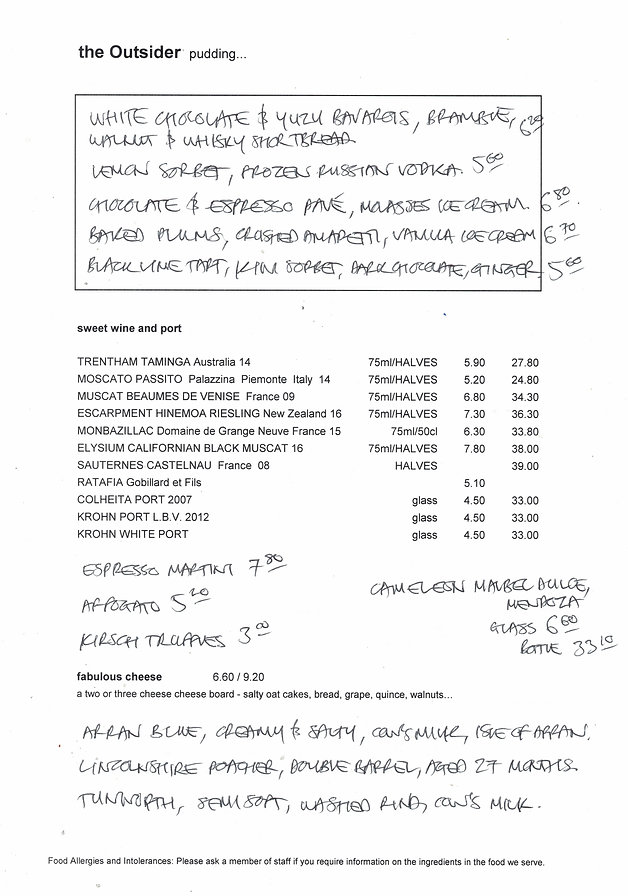 the Outsider pudding...
WHITE CHOCOLATE & YUZU BAVAROIS, BRAMBLE, 6.20
WALNUT & WHISKY SHORTBREAD
LEMON SORBET, FROZEN RUSSIAN VODKA. 5.60
CHOCOLATE & ESPRESSO PAVÉ, MOLASSES ICE CREAM. 6.80.
BAKED PLUMS, CRUSHED AMARETTI, VANILLA ICE CREAM 6.70
BLACK LIME TART, KIWI SORBET, DARK CHOCOLATE, GINGER. 5.60
sweet wine and port
TRENTHAM TAMINGA Australia 14 75ml/HALVES 5.90 27.80
MOSCATO PASSITO Palazzina Piemonte Italy 14 75ml/HALVES 5.20 24.80
MUSCAT BEAUMES DE VENISE France 09 75ml/HALVES 6.80 34.30
ESCARPMENT HINEMOA RIESLING New Zealand 16 75ml/HALVES 7.30 36.30
MONBAZILLAC Domaine de Grange Neuve France 15 75ml/50cl 6.30 33.80
ELYSIUM CALIFORNIAN BLACK MUSCAT 16 75ml/HALVES 7.80 38.00
SAUTERNES CASTELNAU France 08 HALVES 39.00
RATAFIA Gobillard et Fils 5.10
COLHEITA PORT 2007 glass 4.50 33.00
KROHN PORT L.B.V. 2012 glass 4.50 33.00
KROHN WHITE PORT glass 4.50 33.00
ESPRESSO MARTINI 7.80
AFFOGATO 5.20
KIRSCH TRUFFLES 3.00
CAMELEON MALBEC DULCE,
MENDOZA
GLASS 6.60
BOTTLE 33.10
fabulous cheese 6.60 / 9.20
a two or three cheese cheese board - salty oat cakes, bread, grape, quince, walnuts...
ARRAN BLUE, CREAMY & SALTY, COW'S MILK, ISLE OF ARRAN.
LINCOLNSHIRE POACHER, DOUBLE BARREL, AGED 27 MONTHS.
TUNWORTH, SEMI SOFT, WASHED RIND, COW'S MILK.
Food Allergies and Intolerances: Please ask a member of staff if you require information on the ingredients in the food we serve.